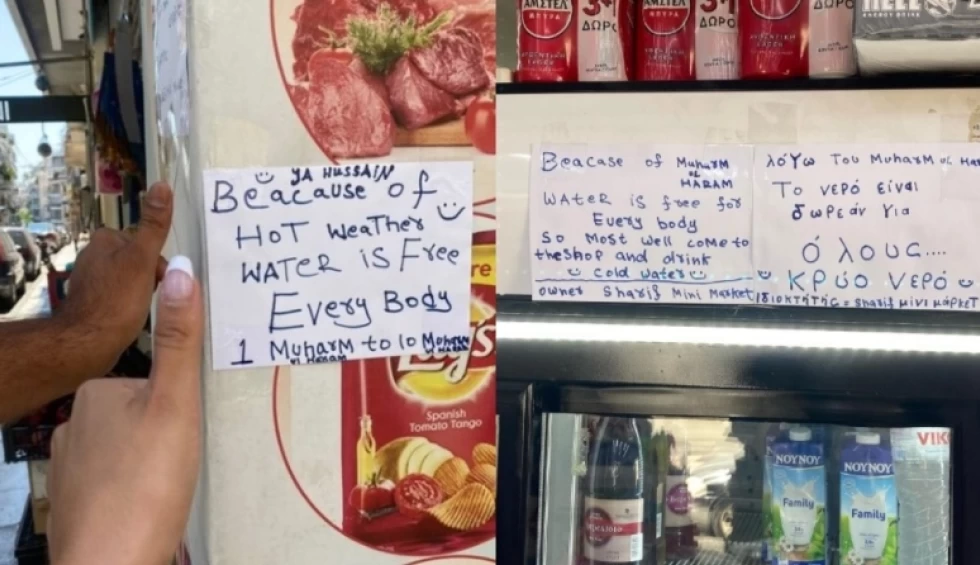 YA HUSSAIN
Beacause of
HOT Weather
WATER is Free
Every Body
1 Muharm to 10 Muharm
ol HARAM
ol HARAM
re
Lay's
Spanish
Tomato Tango
ΑΜΣΤΕΛ
3+1
ΔΩΡΟ
ΑΜΣΤΕΛ
3+1
ΔΩΡΟ
ΔΩΡΟ
HELL
ENERGY DRINK
Beacase of Muharm
ol
HARAM
WAteR is free for
Every body
So Most well come to
the shop and drink
Cold water
owner Sharif Mini Market
λόγω Του Muharm ol HAR
Το νερό είναι
δωρεάν για
όλους....
ΚΡύο νερό
ιδιοκτήτης = sharif μίνι μάρκετ
ΝΟΥΝΟΥ
Family
ΝΟΥΝΟΥ
Family
VIK